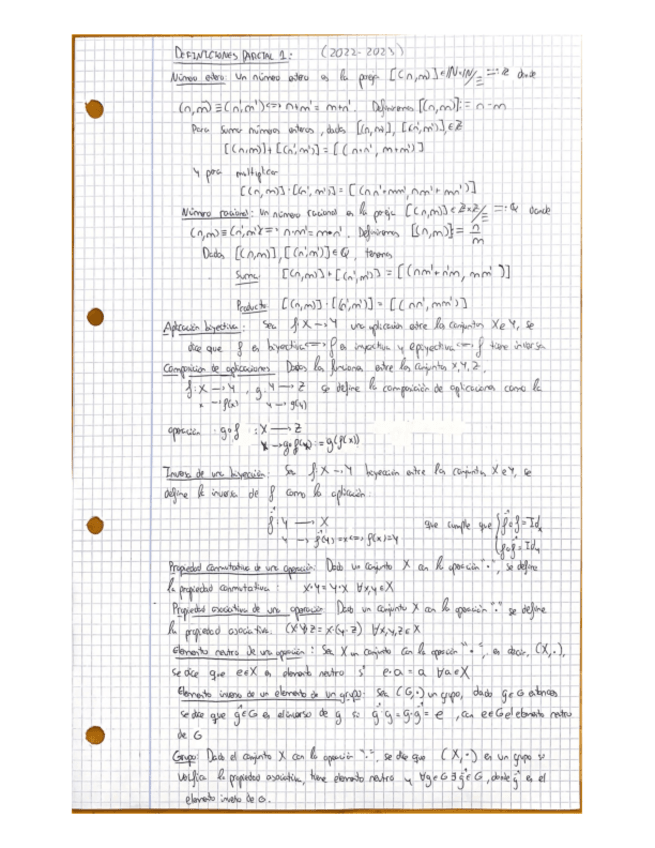 DEFINICIONES PARCIAL 1: (2022-2023)
Número entero: Un número entero es la pareja [(n,m)] ∈ ℕ×ℕ/≡ =: ℤ donde
(n,m) ≡ (n',m') <=> n+m' = m+n'. Definiremos [(n,m)] := n-m
Para sumar números enteros, dados [(n,m)], [(n',m')] ∈ ℤ
[(n,m)] + [(n',m')] = [(n+n', m+m')]
Y para multiplicar
[(n,m)]·[(n',m')] = [(nn'+mm', nm'+mn')]
Número racional: Un número racional es la pareja [(n,m)] ∈ ℤ×ℤ/≡ =: ℚ donde
(n,m) ≡ (n',m') <=> n·m' = m·n'. Definiremos [(n,m)] = n/m
Dados [(n,m)], [(n',m')] ∈ ℚ, tenemos
Suma [(n,m)] + [(n',m')] = [(nm'+n'm, mm')]
Producto [(n,m)]·[(n',m')] = [(nn', mm')]
Aplicación biyectiva: Sea f: X → Y una aplicación entre los conjuntos X e Y, se
dice que f es biyectiva <=> f es inyectiva y epiyectiva <=> f tiene inversa
Composición de aplicaciones Dadas las funciones entre los conjuntos X, Y, Z,
f: X → Y , g: Y → Z se define la composición de aplicaciones como la
x → f(x) y → g(y)
operación g∘f : X → Z
x → g∘f(x) := g(f(x))
Inversa de una biyección: Sea f: X → Y biyección entre los conjuntos X e Y, se
define la inversa de f como la aplicación:
f⁻¹: Y → X que cumple que { f⁻¹∘f = Idₓ
y → f⁻¹(y) = x <=> f(x) = y { f∘f⁻¹ = Id_Y
Propiedad conmutativa de una operación: Dado un conjunto X con la operación "·", se define
la propiedad conmutativa: x·y = y·x ∀x,y ∈ X
Propiedad asociativa de una operación Dado un conjunto X con la operación "·" se define
la propiedad asociativa: (x·y)·z = x·(y·z) ∀x,y,z ∈ X
Elemento neutro de una operación: Sea X un conjunto con la operación "·", es decir, (X,·),
se dice que e ∈ X es elemento neutro si e·a = a ∀a ∈ X
Elemento inverso de un elemento de un grupo: Sea (G,·) un grupo, dado g ∈ G entonces
se dice que g⁻¹ ∈ G es el inverso de g si g⁻¹·g = g·g⁻¹ = e , con e ∈ G el elemento neutro
de G
Grupo: Dado el conjunto X con la operación "·", se dice que (X,·) es un grupo si
verifica la propiedad asociativa, tiene elemento neutro y ∀g ∈ G ∃g⁻¹ ∈ G, donde g⁻¹ es el
elemento inverso de G.